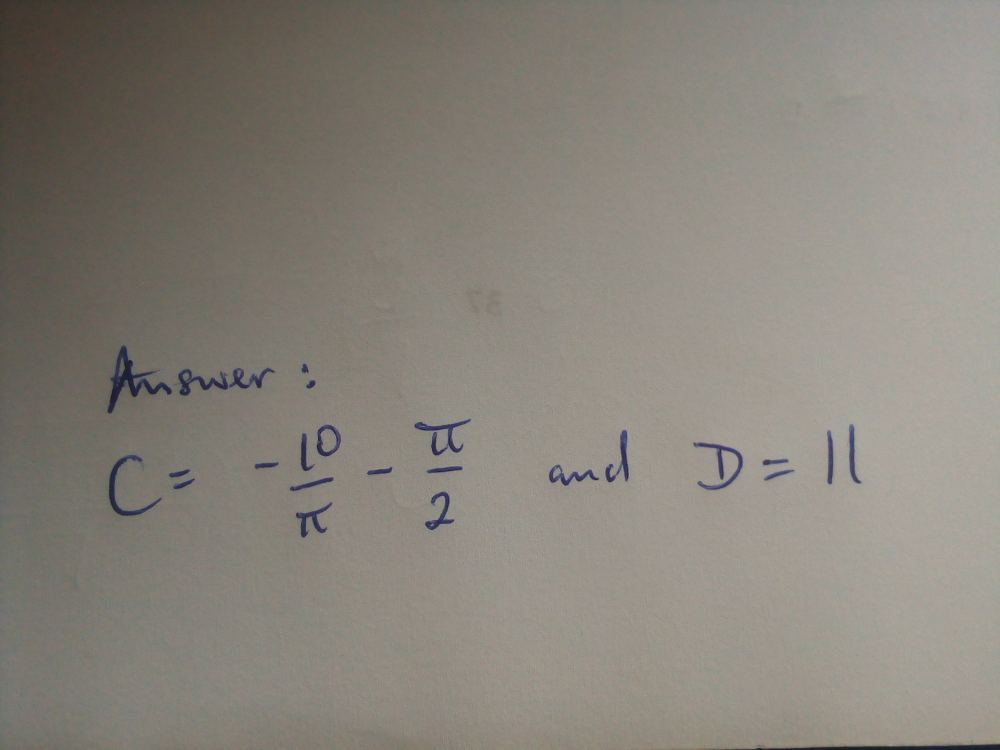 Answer:
C = -10/π - π/2 and D = 11